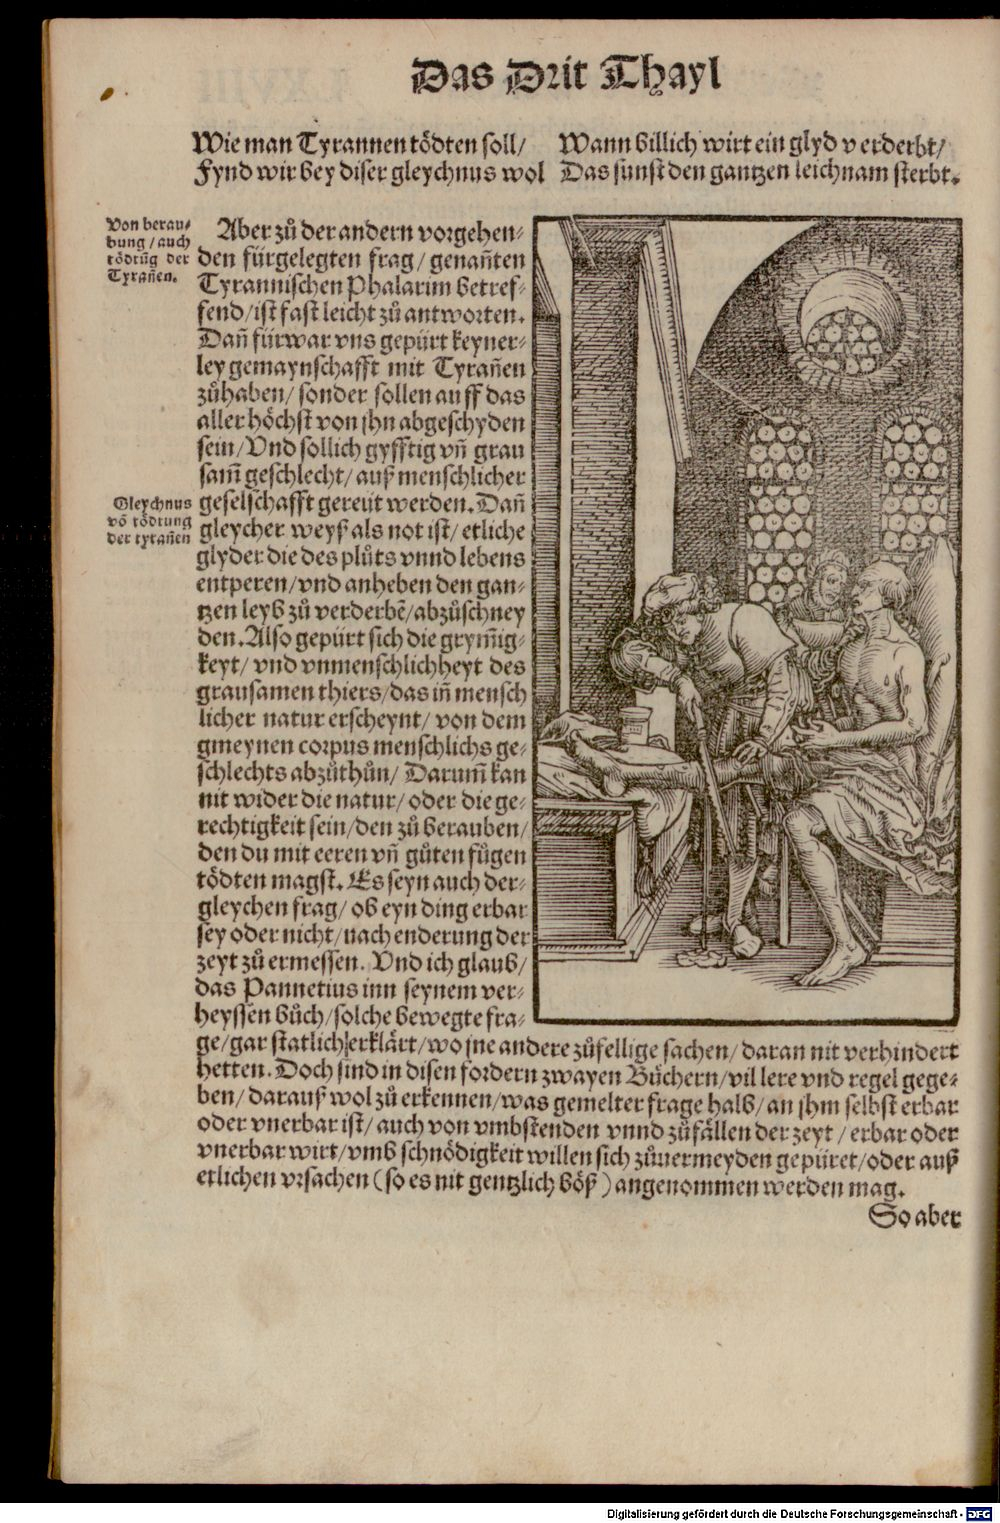 Das Drit Thayl
Wie man Tyrannen tödten soll/
Fynd wir bey diser gleychnus wol
Wann billich wirt ein glyd verderbt/
Das sunst den gantzen leichnam sterbt.
Von berau-
bung / auch
tödtūg der
Tyrañen.
Aber zů der andern vorgehen-
den fürgelegten frag / genañten
Tyrannischen Phalarim betref-
fend / ist fast leicht zů antworten.
Dañ fürwar vns gepürt keyner-
ley gemaynschafft mit Tyrañen
zůhaben / sonder sollen auff das
aller höchst von jhn abgeschyden
sein / Vnd sollich gyfftig vñ grau
sam̃ geschlecht / auß menschlicher
geselschafft gereüt werden. Dañ
Gleychnus
võ tödtung
der tyrañen
gleycher weyß als not ist / etliche
glyder die des plůts vnnd lebens
entperen / vnd anheben den gan-
tzen leyb zů verderbẽ / abzůschney
den. Also gepürt sich die grym̃ig-
keyt / vnd vnmenschlichheyt des
grausamen thiers / das iñ mensch
licher natur erscheynt / von dem
gmeynen corpus menschlichs ge-
schlechts abzůthůn / Darum̃ kan
nit wider die natur / oder die ge-
rechtigkeit sein / den zů berauben /
den du mit eeren vñ gůten fůgen
tödten magst. Es seyn auch der-
gleychen frag / ob eyn ding erbar
sey oder nicht / nach enderung der
zeyt zů ermessen. Vnd ich glaub /
das Pannetius inn seynem ver-
heyssen bůch / solche bewegte fra-
ge / gar statlich erklärt / wo jne andere zůfellige sachen / daran nit verhindert
hetten. Doch sind in disen fordern zwayen Büchern / vil lere vnd regel gege-
ben / darauß wol zů erkennen / was gemelter frage halb / an jhm selbst erbar
oder vnerbar ist / auch von vmbstenden vnnd zůfällen der zeyt / erbar oder
vnerbar wirt / vmb schnödigkeit willen sich zůuermeyden gepüret / oder auß
etlichen vrsachen ( so es nit gentzlich böß ) angenommen werden mag.
So aber
Digitalisierung gefördert durch die Deutsche Forschungsgemeinschaft - DFG